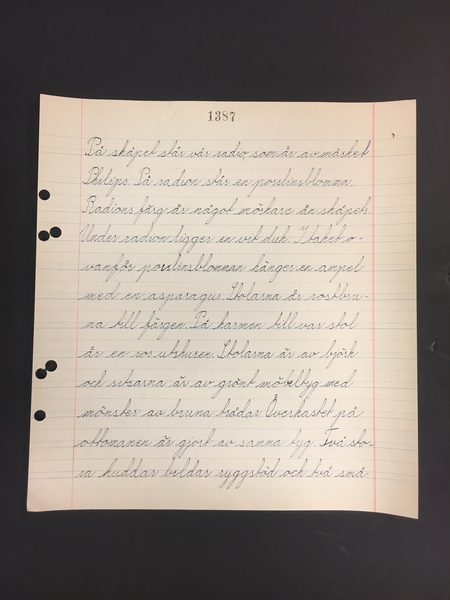 1387
På skåpet står vår radio, som är av märket
Philips. På radion står en porslinsblomma.
Radions färg är något mörkare än skåpets.
Under radion ligger en vit duk. I taket o-
vanför porslinsblomman hänger en ampel
med en asparagus. Stolarna är rostbru-
na till färgen. På karmen till var stol
är en ros utskuren. Stolarna är av björk
och sitsarna är av grönt möbeltyg med
mönster av bruna trådar. Överkastet på
ottomanen är gjort av samma tyg. Två sto-
ra kuddar bildar ryggstöd och två små